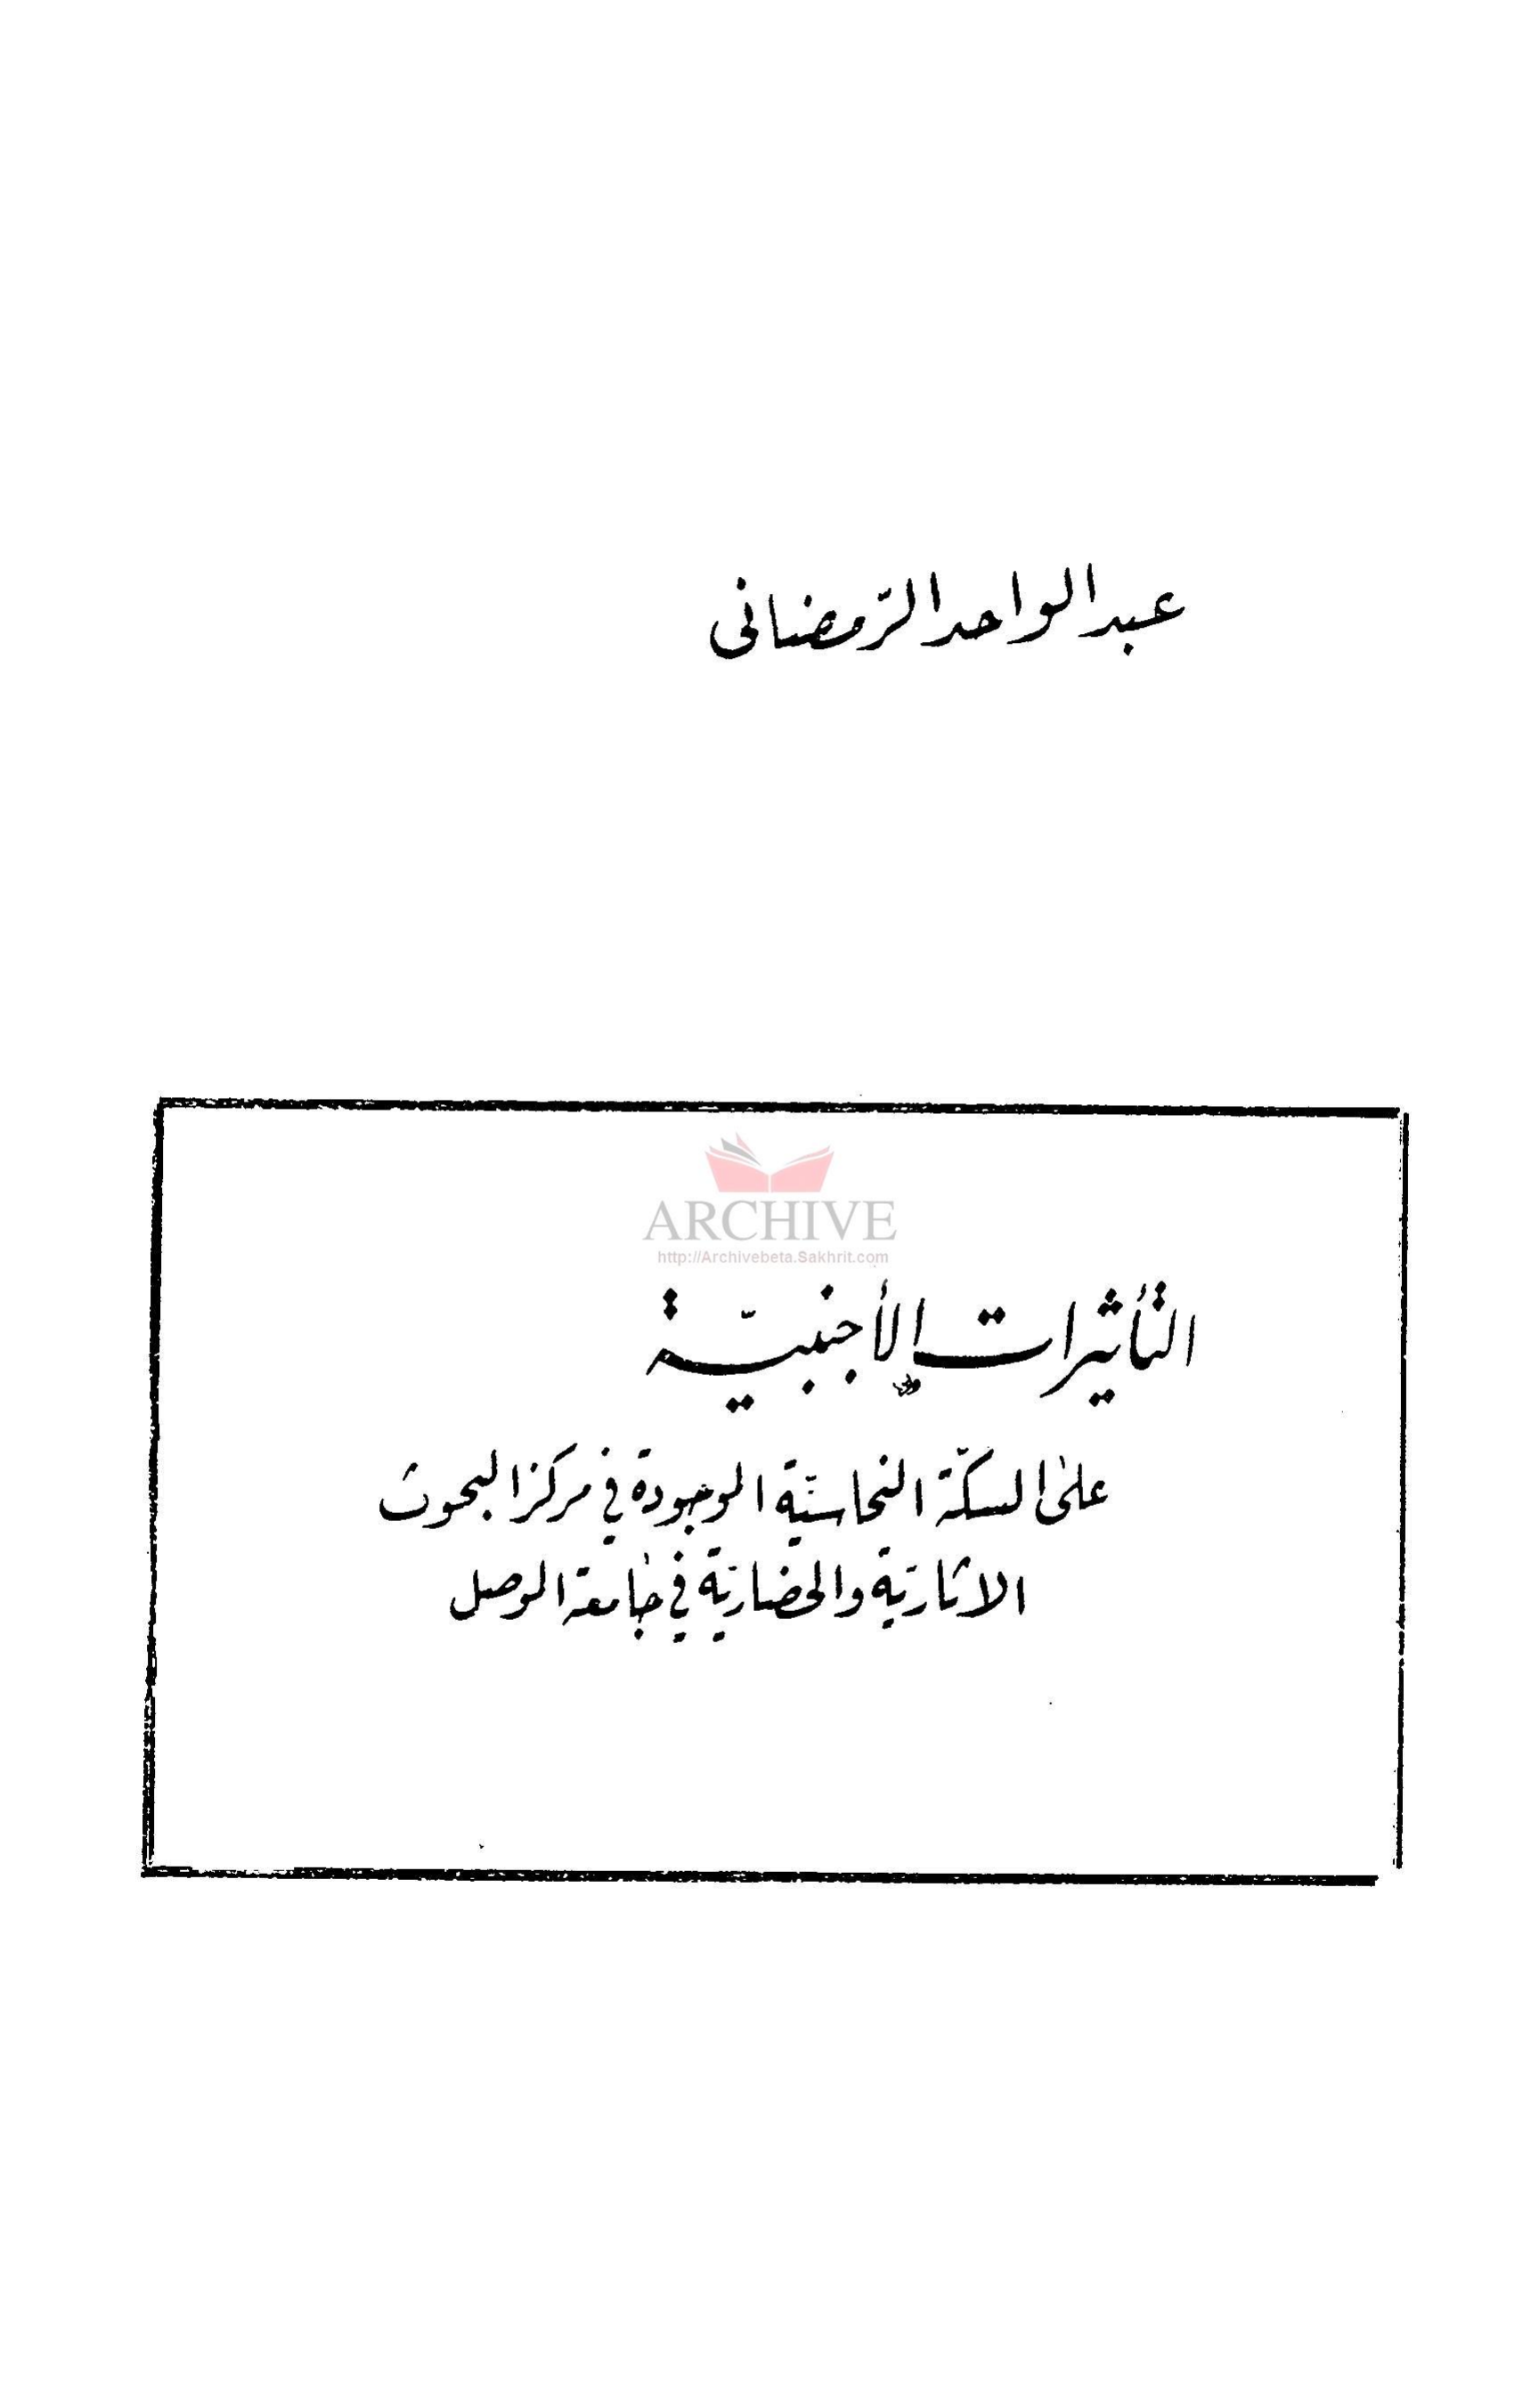 عبد الواحد الرّمضاني
ARCHIVE
http://Archivebeta.Sakhrit.com
التأثيرات الأجنبيّة
على السكّة النحاسيّة الموجودة في مركز البحوث
الاثاريّة والحضاريّة في جامعة الموصل